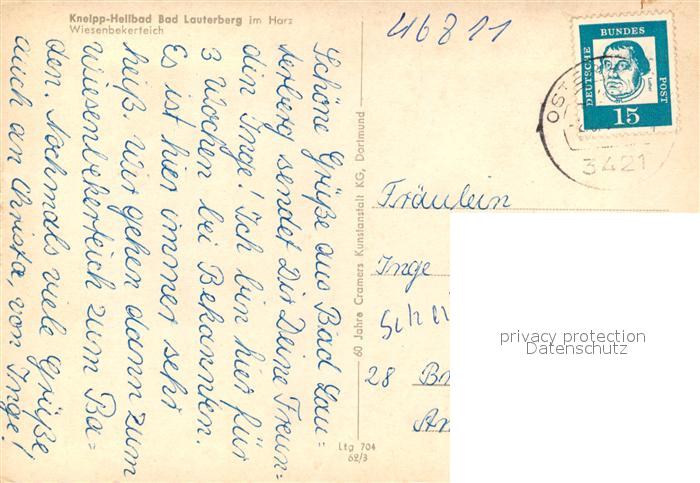 Kneipp-Heilbad Bad Lauterberg im Harz
Wiesenbekerteich
46811
DEUTSCHE
BUNDES
POST
Luther
15
3421
Schöne Grüße aus Bad Lau=
terberg sendet Dir Deine Freun=
din Inge! Ich bin hier für
3 Wochen bei Bekannten.
Es ist hier immer sehr
heiß. Wir gehen dann zum
Wiesenbekerteich zum Ba=
den. Nochmals viele Grüße,
auch an Christa, von Inge!
60 Jahre Cramers Kunstanstalt KG, Dortmund
Fräulein
Inge
28 
privacy protection
Datenschutz
Ltg 704
62/3